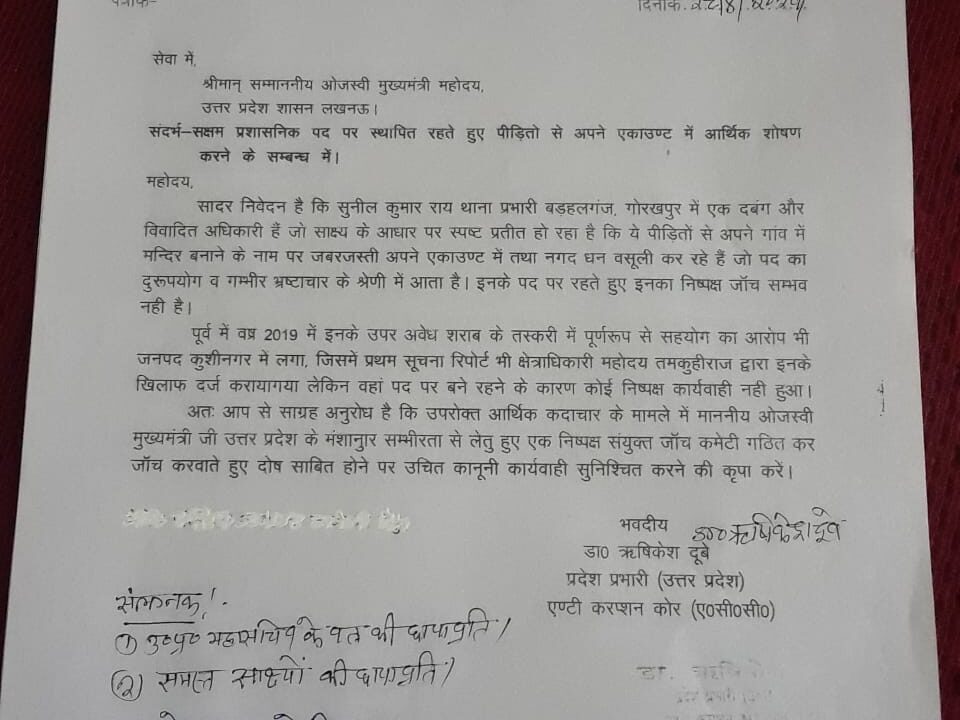 पत्रांक-
दिनांक.
सेवा में,
श्रीमान् सम्माननीय ओजस्वी मुख्यमंत्री महोदय,
उत्तर प्रदेश शासन लखनऊ।
संदर्भ–सक्षम प्रशासनिक पद पर स्थापित रहते हुए पीड़ितो से अपने एकाउण्ट में आर्थिक शोषण
करने के सम्बन्ध में।
महोदय,
सादर निवेदन है कि सुनील कुमार राय थाना प्रभारी बड़हलगंज, गोरखपुर में एक दबंग और
विवादित अधिकारी हैं जो साक्ष्य के आधार पर स्पष्ट प्रतीत हो रहा है कि ये पीड़ितों से अपने गांव में
मन्दिर बनाने के नाम पर जबरजस्ती अपने एकाउण्ट में तथा नगद धन वसूली कर रहे हैं जो पद का
दुरूपयोग व गम्भीर भ्रष्टाचार के श्रेणी में आता है। इनके पद पर रहते हुए इनका निष्पक्ष जॉच सम्भव
नही है।
पूर्व में वष्र 2019 में इनके उपर अवेध शराब के तस्करी में पूर्णरूप से सहयोग का आरोप भी
जनपद कुशीनगर में लगा, जिसमें प्रथम सूचना रिपोर्ट भी क्षेत्राधिकारी महोदय तमकुहीराज द्वारा इनके
खिलाफ दर्ज करायागया लेकिन वहां पद पर बने रहने के कारण कोई निष्पक्ष कार्यवाही नही हुआ।
अतः आप से साग्रह अनुरोध है कि उपरोक्त आर्थिक कदाचार के मामले में माननीय ओजस्वी
मुख्यमंत्री जी उत्तर प्रदेश के मंशानुार सम्भीरता से लेतु हुए एक निष्पक्ष संयुक्त जॉच कमेटी गठित कर
जॉच करवाते हुए दोष साबित होने पर उचित कानूनी कार्यवाही सुनिश्चित करने की कृपा करें।
भवदीय डा० ऋषिकेश दूबे
डा0 ऋषिकेश दूबे
प्रदेश प्रभारी (उत्तर प्रदेश)
एण्टी करप्शन कोर (ए0सी0सी0)
संलग्नक!
① उ०प्र० महासचिव के पत्र की छायाप्रति।
② समस्त साक्ष्यों की छायाप्रति।